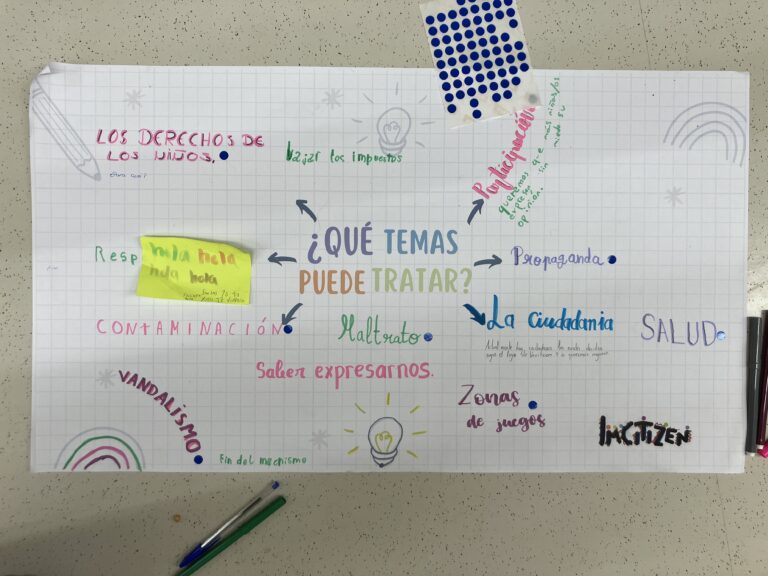 LOS DERECHOS DE
LOS NIÑOS.
bajar los impuestos
Participación
queremos que más niñas/os
expresen sin miedo su
opinión.
¿QUÉ TEMAS
PUEDE TRATAR?
Resp
hola hola
hola hola
Propaganda
CONTAMINACIÓN
Maltrato
La Ciudadania
SALUD
Saber expresarnos.
VANDALISMO
Zonas
de juegos
Fin del machismo
IMCITIZEN